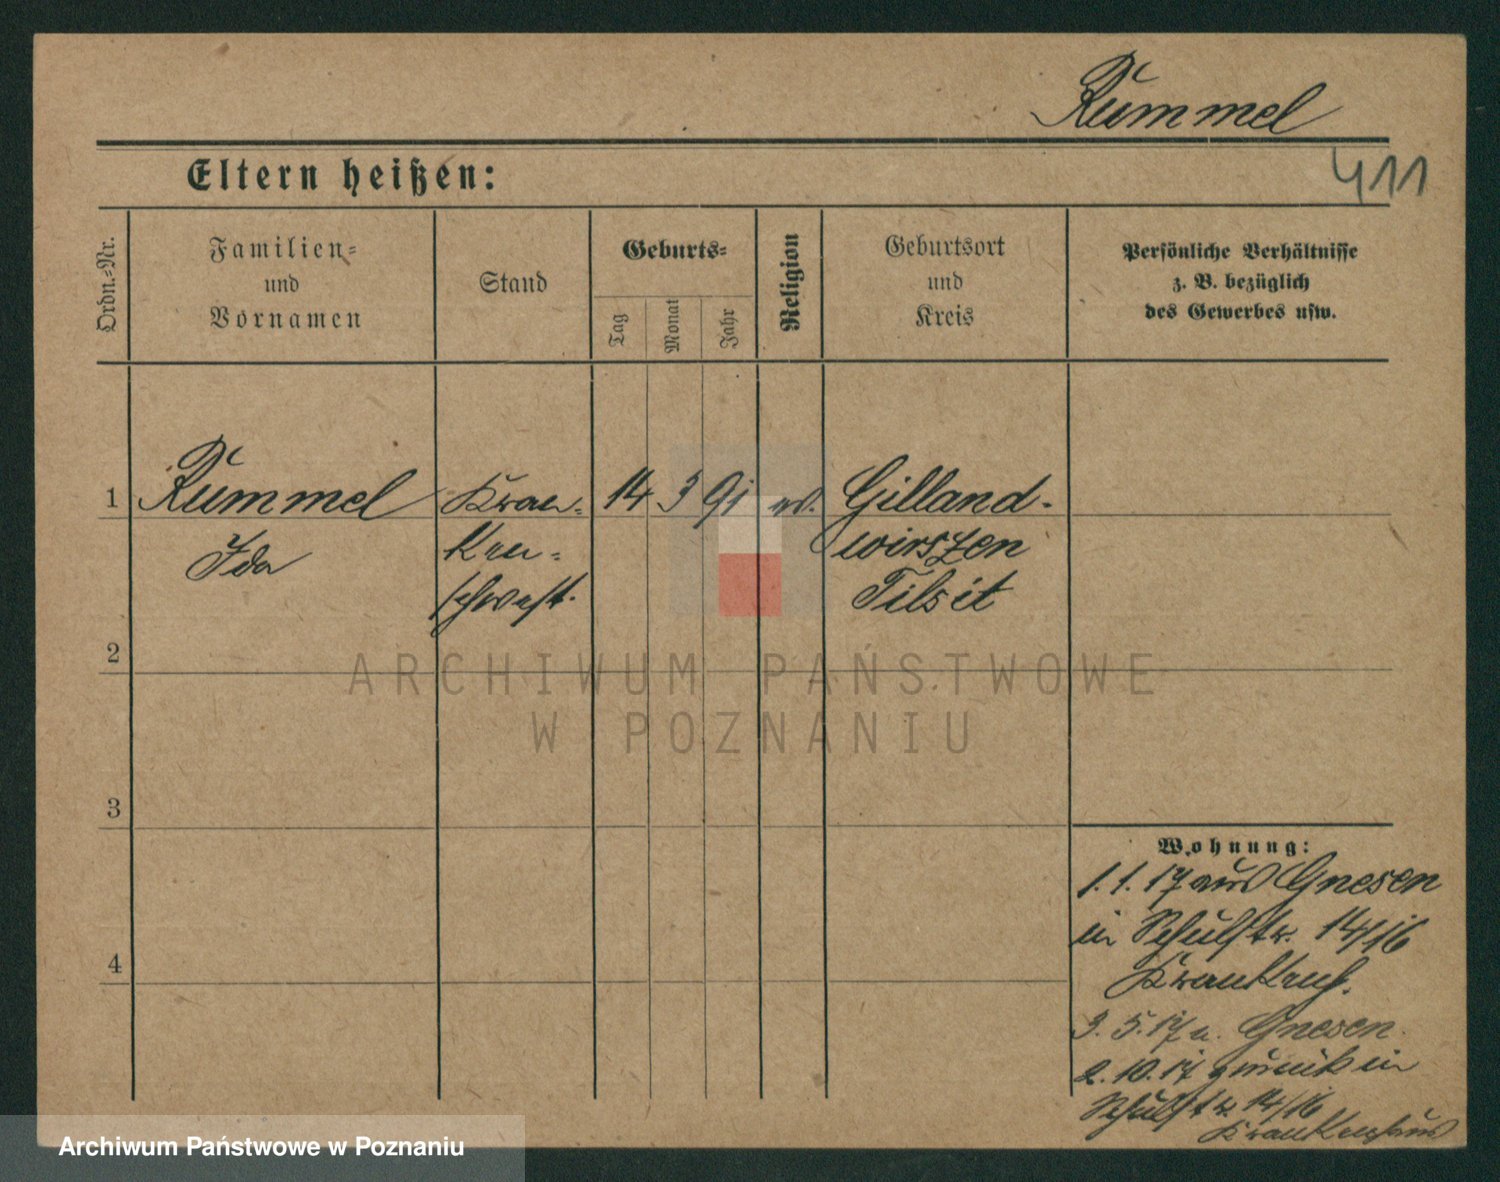 Rummel
411
Eltern heißen:
Ordn.-Nr.
Familien-
und
Vornamen
Stand
Geburts-
Tag
Monat
Jahr
Religion
Geburtsort
und
Kreis
Persönliche Verhältnisse
z. B. bezüglich
des Gewerbes usw.
1 Rummel Kran- 14 3 91 Gilland-
Ida ken- wirszen
schwest. Tilsit
2
ARCHIWUM PAŃSTWOWE
W POZNANIU
3
Wohnung:
1.1.17 aus Gnesen
in Schulstr. 14/16
Krankenh.
4
3.5.17 n. Gnesen.
2.10.17 zurück in
Schulstr 14/16
Krankenhaus
Archiwum Państwowe w Poznaniu